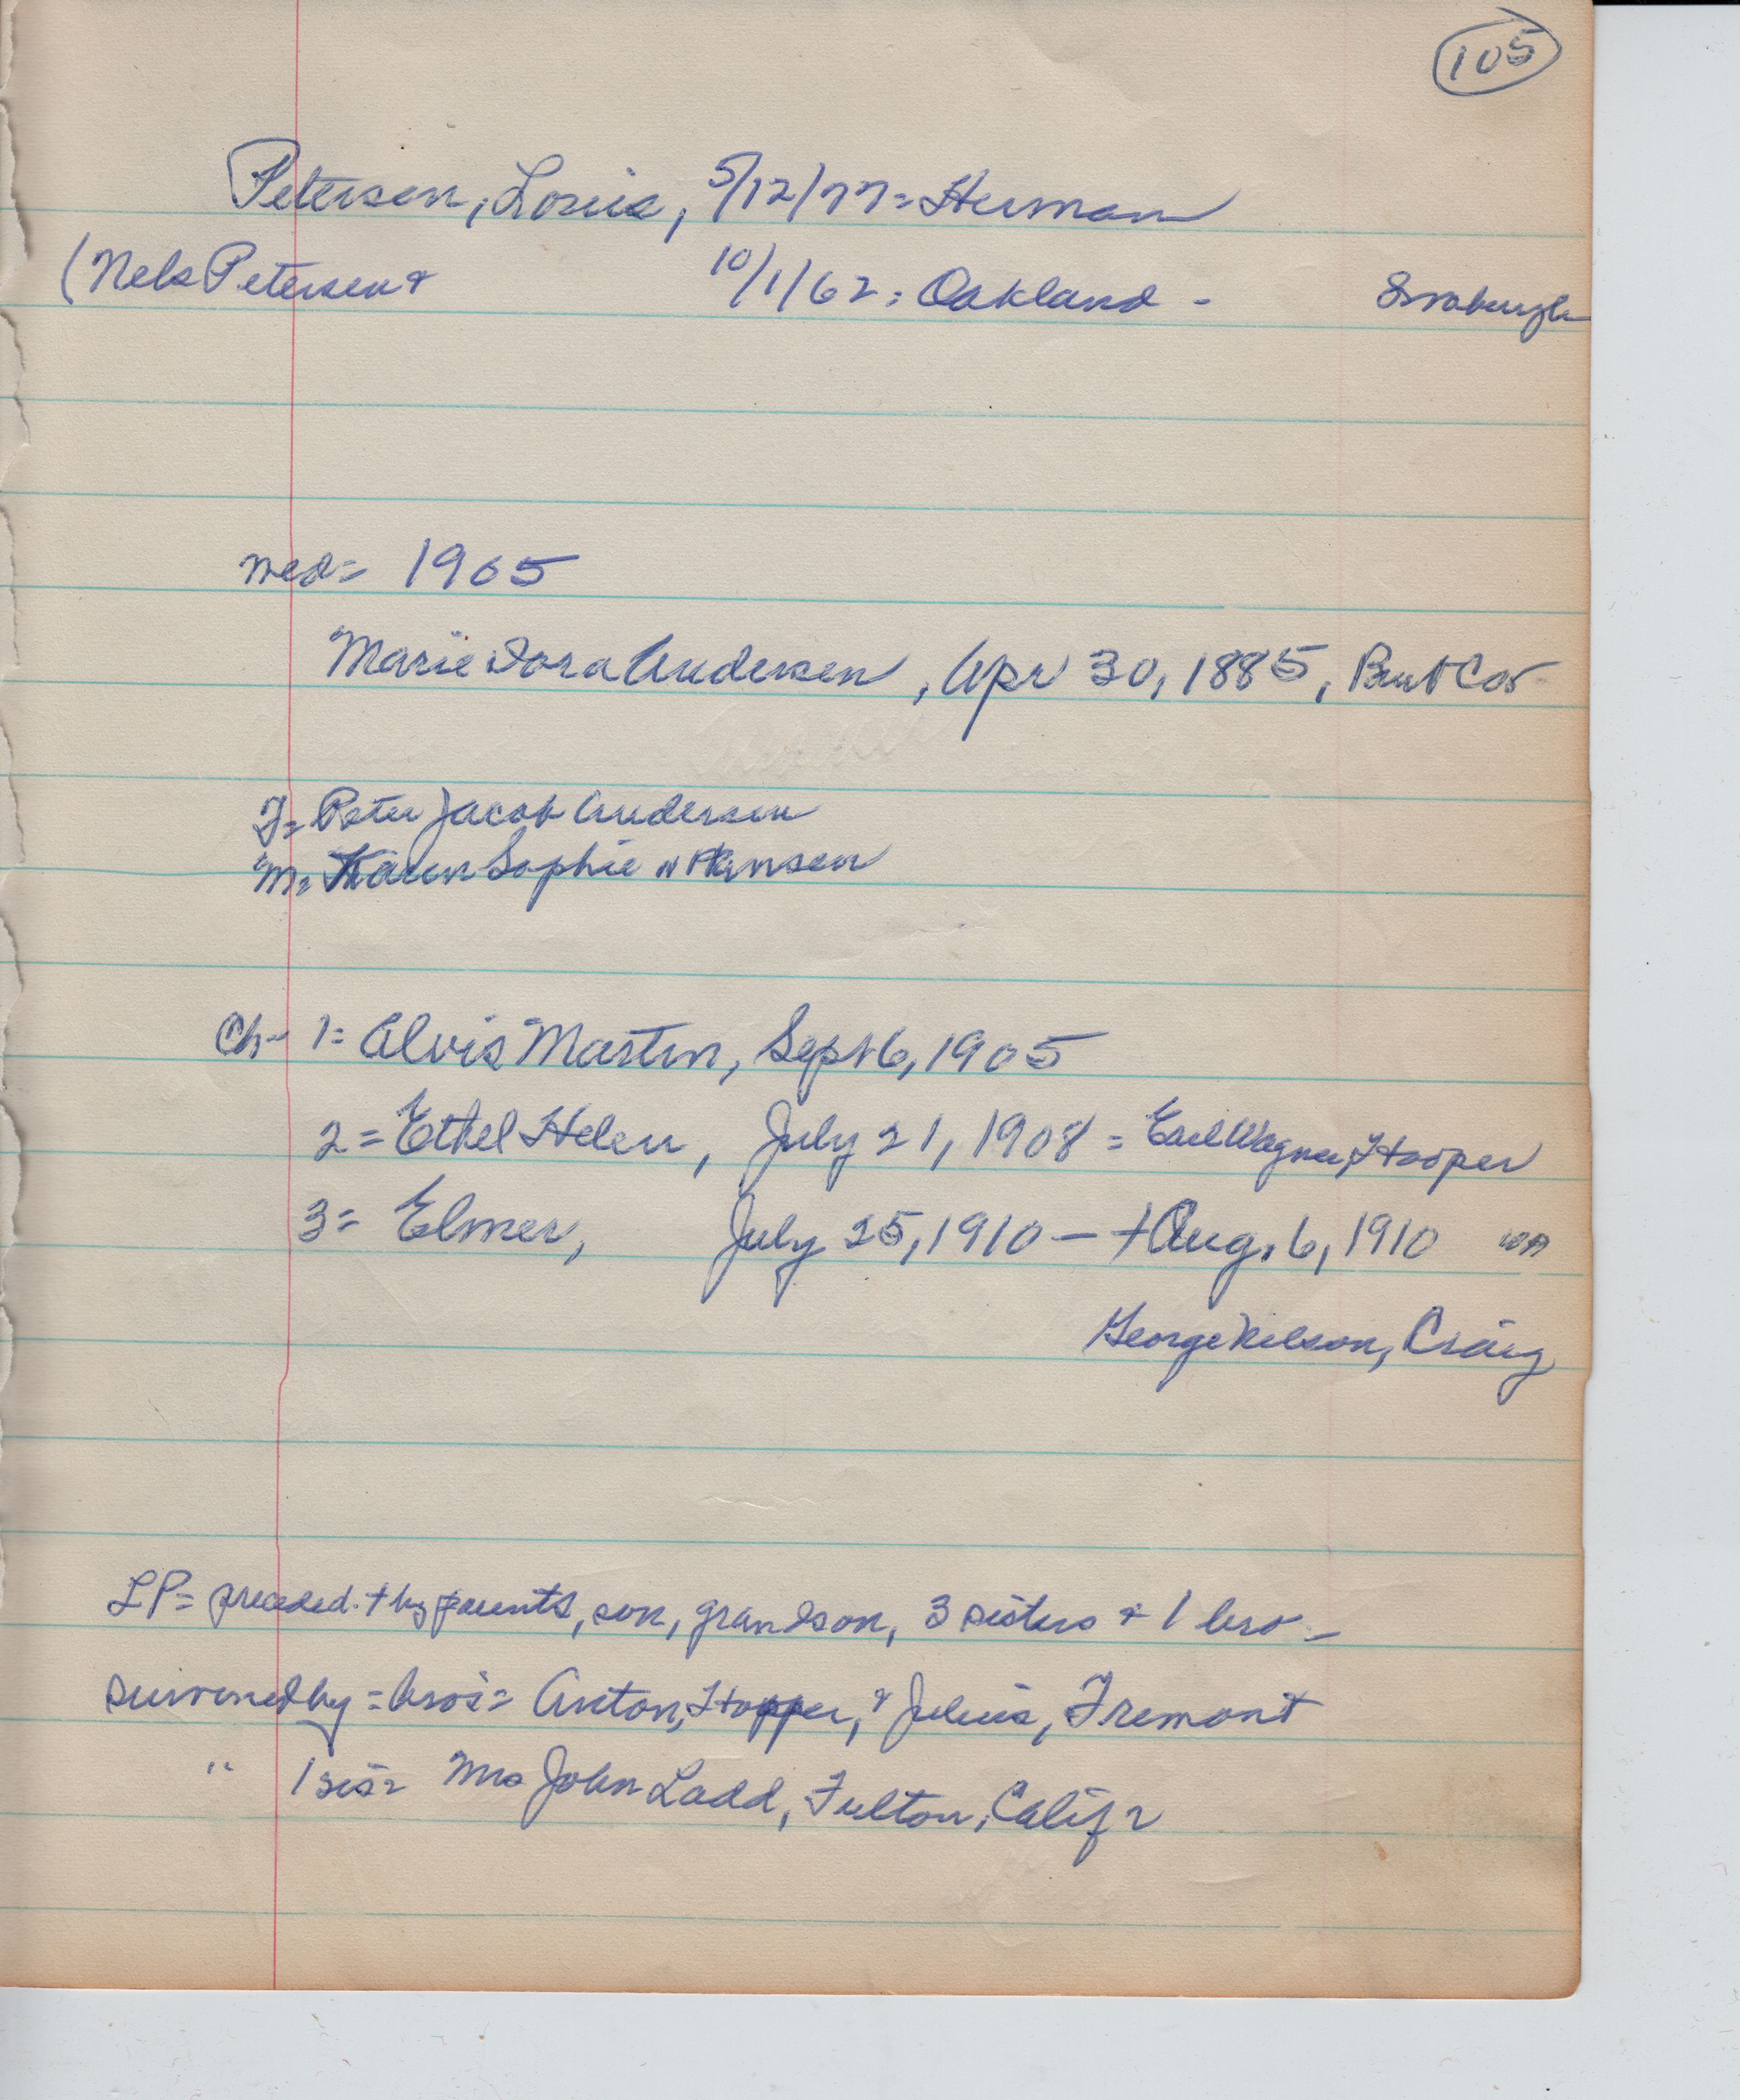 105
Petersen, Louis, 5/12/77 = Herman
(Nels Petersen + 10/1/62 : Oakland -
wed = 1905
Marie Dora Andersen, Apr 30, 1885, Burt Co
F = Peter Jacob Andersen
M = Karen Sophie n Hansen
Ch - 1 = Alvis Martin, Sept 6, 1905
2 = Ethel Helen, July 21, 1908 = Earl Wagner, Hooper
3 = Elmer, July 25, 1910 — + Aug. 6, 1910
George Nelson, Craig
LP = preceded + by parents, son, grandson, 3 sisters + 1 bro -
survived by = bros = Anton, Hopper, + Julius, Fremont
" 1 sis = Mrs John Ladd, Fulton, Calif